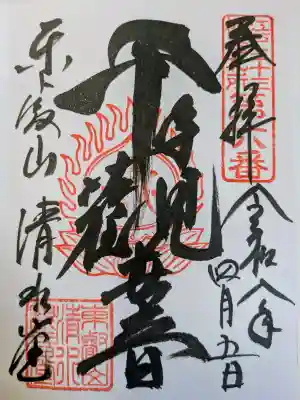 奉拝
令和八年
四月五日
千手観世音
東叡山 清水堂